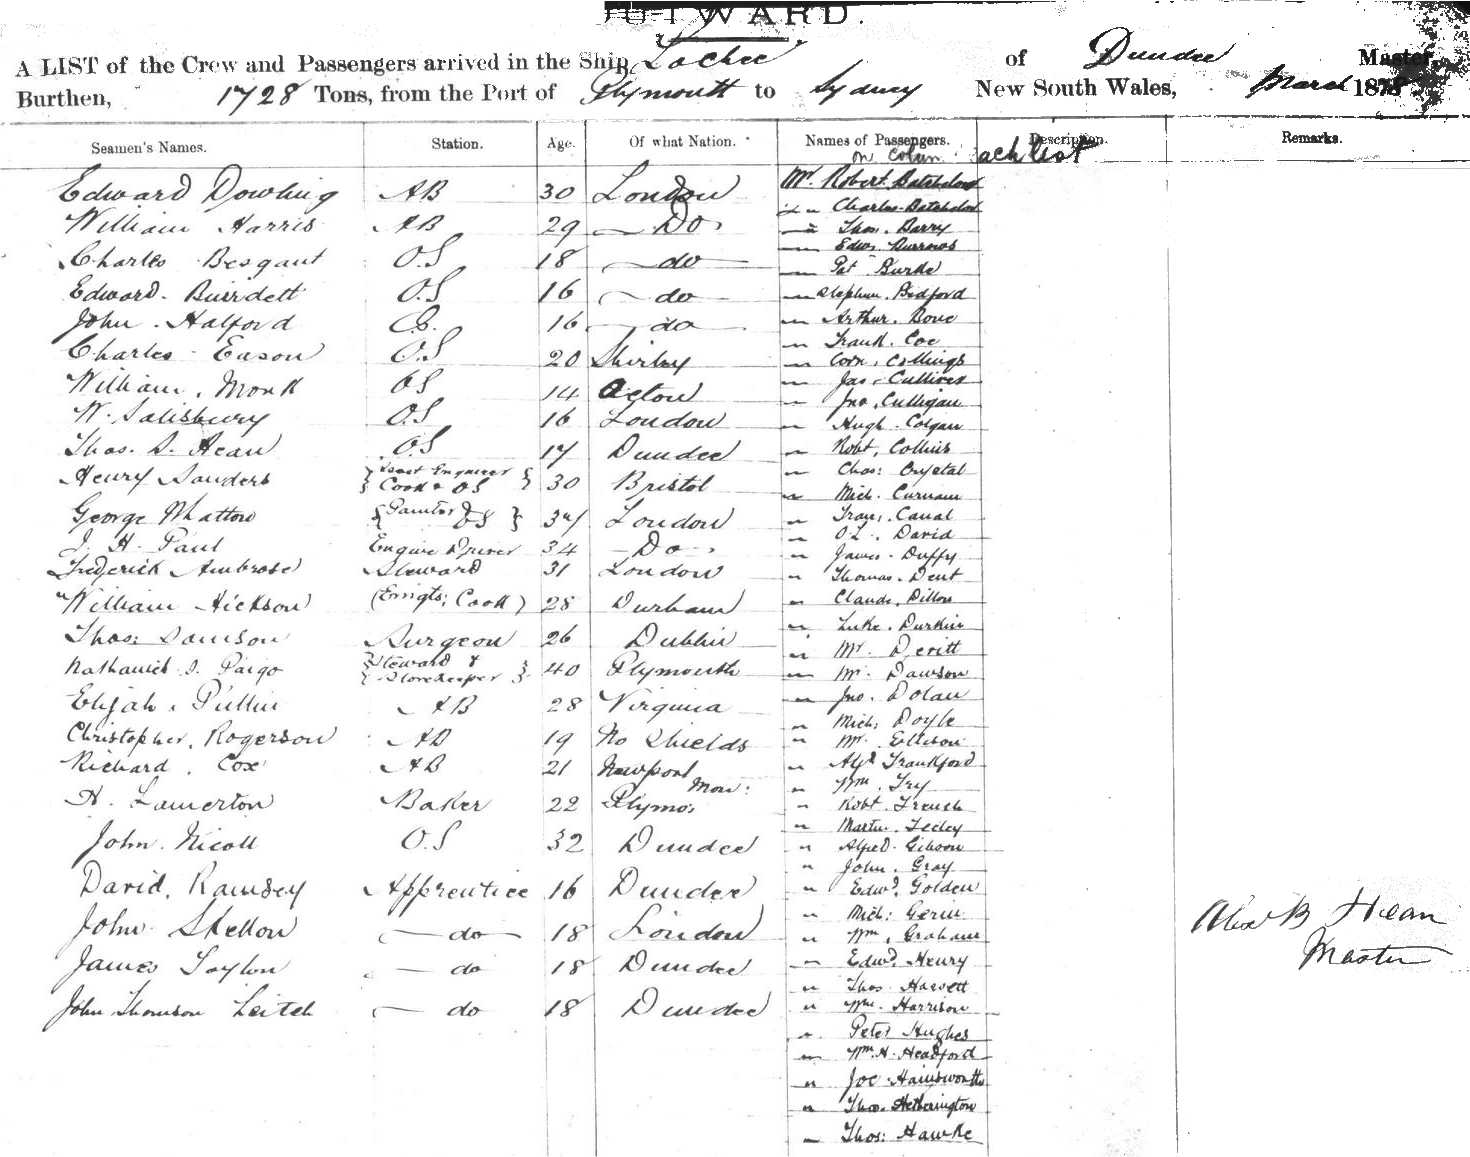 OUTWARD.
A LIST of the Crew and Passengers arrived in the Ship Lochee of Dundee Master,
Burthen, 1728 Tons, from the Port of Plymouth to Sydney New South Wales, March 1878
Seamen's Names. Station. Age. Of what Nation. Names of Passengers. Description. Remarks.
on Colum. ach list
Edward Dowling AB 30 London
William Harris AB 29 Do
Charles Besgant O.S 18 do
Edward Burdett O.S 16 do
John Halford O.S. 16 do
Charles Eason O.S 20 Shirley
William Monk OS 14 Acton
W. Salisbury O.S 16 London
Thos. S. Hean O.S 17 Dundee
Henry Sanders Cook & OS 30 Bristol
George Mattow Painter & OS 37 London
J. H. Paul Engine Driver 34 Do
Frederick Ambrose Steward 31 London
William Hickson (Emigts; Cook) 28 Durham
Thos: Samson Surgeon 26 Dublin
Nathaniel J. Paige Steward & Storekeeper 40 Plymouth
Elijah Pullin AB 28 Virginia
Christopher Rogerson AB 19 No Shields
Richard Cox AB 21 Newport Mon:
H. Lamerton Baker 22 Plymo
John Nicoll O.S 32 Dundee
David Ramsey Apprentice 16 Dundee
John Skelton do 18 London
James Taylor do 18 Dundee
John Thomson Leitch do 18 Dundee
Mr Robert Batchelor
Charles Batchelor
Thos. Barry
Edwd Burrows
Pat Burke
Stephen Bedford
Arthur Bone
Frank Coe
Corn. Collings
Jas.
Jno. Culligan
Hugh Colgan
Robt. Collins
Chas: Crystal
Mich. Curnain
Fran: Canal
O. L. David
James Duffy
Thomas Dent
Claude Dillon
Luke Durkin
Mr. Devitt
Mr. Dawson
Jno. Dolan
Mich: Doyle
Mr. Ellison
Alfd Frankford
Wm. Fry
Robt. French
Martin Feeley
Alfred Gibson
John Gray
Edwd. Golden
Mich: Gerin
Wm. Graham
Edwd. Henry
Thos. Harvett
Wm. Harrison
Peter Hughes
Wm. H. Headford
Joe Hainsworth
Thos. Hetherington
Thos: Hawke
Alexr B Hean
Master